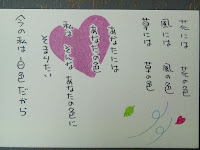 花には 花の色
風には 風の色
草には 草の色
あなたには
あなたの色
私は そんな あなたの色に
そまりたい
今の私は 白色だから